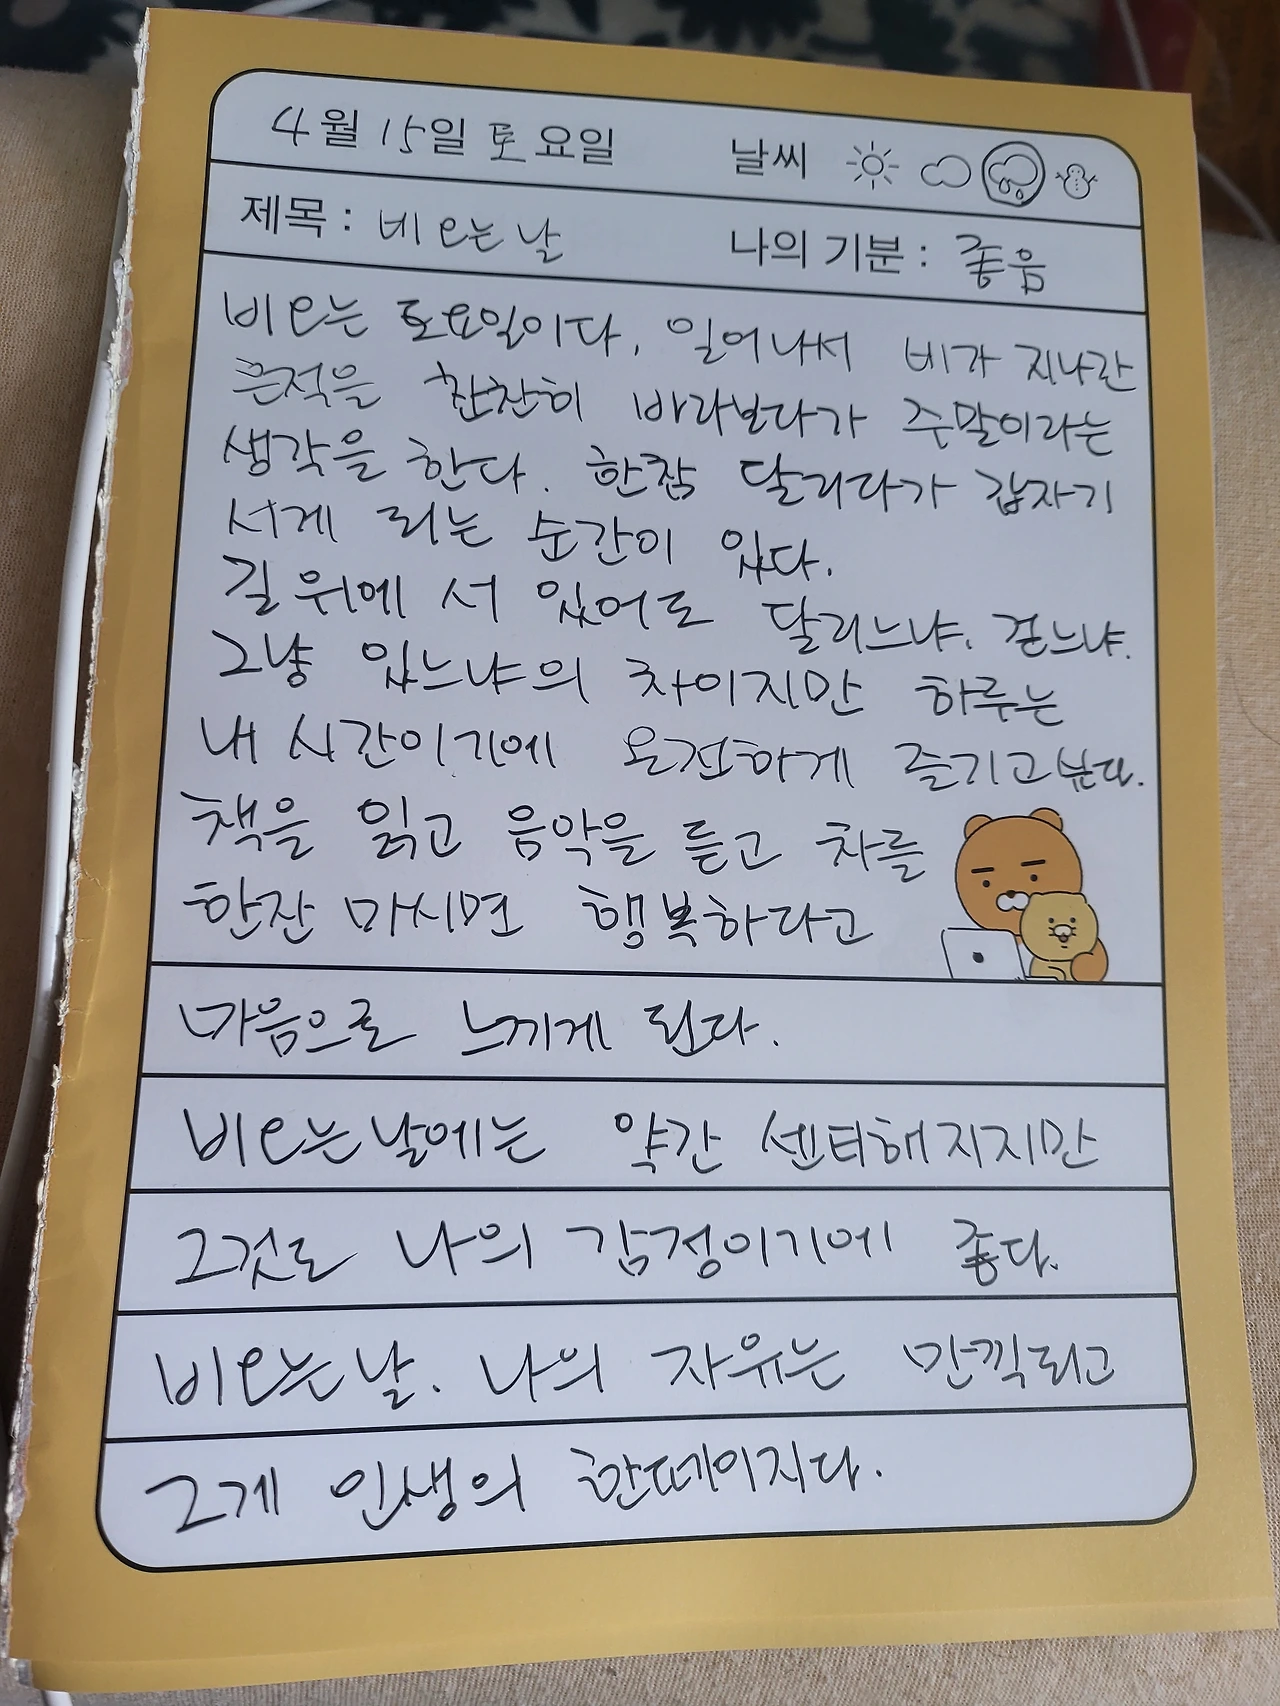 4월 15일 토요일 날씨
제목 : 비오는날 나의 기분 : 좋음
비오는 토요일이다. 일어나서 비가 지나간
흔적을 찬찬히 바라보다가 주말이라는
생각을 한다. 한참 달리다가 갑자기
서게 되는 순간이 있다.
길 위에 서 있어도 달리느냐. 걷느냐.
그냥 있느냐의 차이지만 하루는
내 시간이기에 온전하게 즐기고싶다.
책을 읽고 음악을 듣고 차를
한잔 마시면 행복하다고
마음으로 느끼게 된다.
비오는날에는 약간 센티해지지만
그것도 나의 감정이기에 좋다.
비오는날. 나의 자유는 만끽되고
그게 인생의 한페이지다.